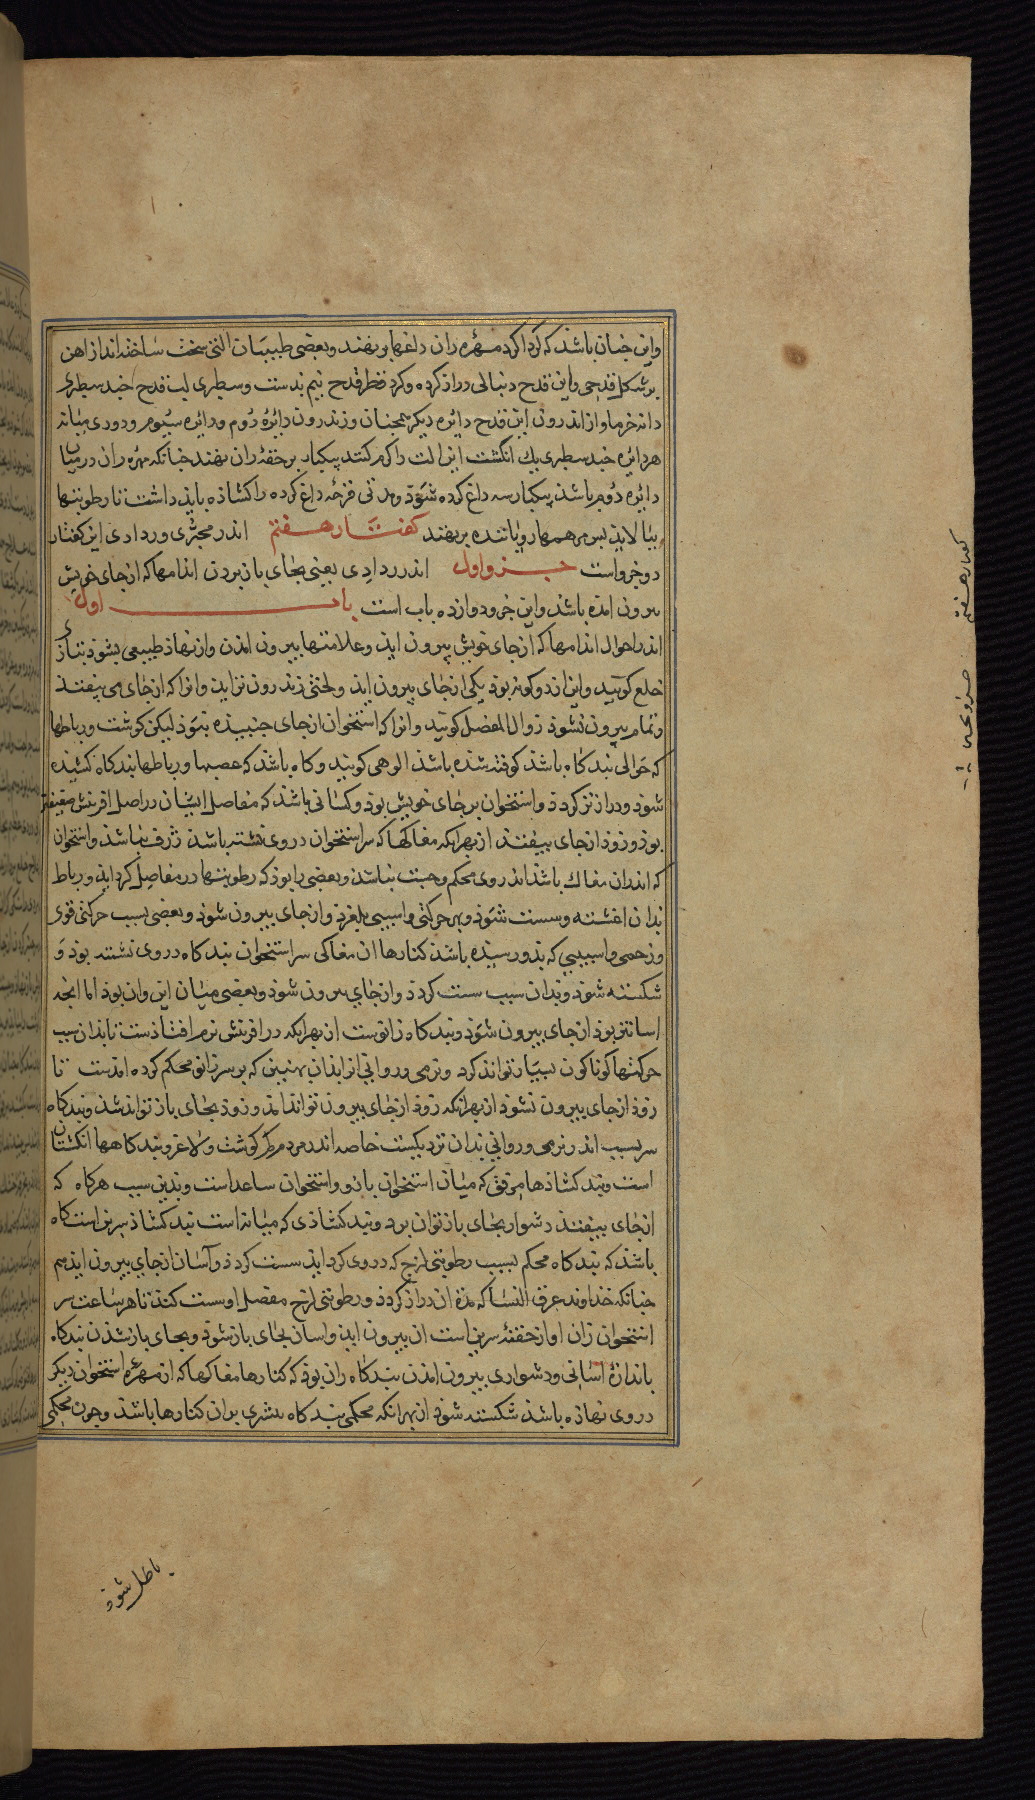 واین جنان باشذ که کرد اکرد مهره ران داغها برنهند وبعضی طبیبان التی سخت ساخته انداز اهن
بر شکل قدحی واین قدح دنبالی دراز کرده وکرد قطر قدح نیم بدست وسطبری لب قدح جند سطبری
دانه خرما واز اندرون این قدح دایره دیکر همجنان وزندرون دایره دوم ودایره سیوم ودوری میانه
هر دایره جند سطبری یك انکشت این الت را کرم کنند بیکبار بر حقه ران نهند جنانکه مهره ران در میان
دایره دوم باشذ بیکبار سه داغ کرده شوذ ومدتی قرحه داغ کرده را کشاذه بایذ داشت تا رطوبتها
بپالایذ بس مرهمهاء رویاننده برنهند کفتار هفتم اندر مجبری وردادی این کفتار
دو جزو است جزو اول اندر ردادی یعنی بجای باز بردن اندامها که از جای خویش
بیرون امده باشذ واین جزو دوازده باب است باب اول
اندر احوال اندامها که از جای خویش بیرون ایذ وعلامتها بیرون امدن واز نهاذ طبیعی بشوذ بتازی
خلع کویند واین از دو کونه بوذ یکی از جای بیرون ایذ ولختی زندرون تر ایذ وانرا که از جای می بیفتد
وتمام بیرون نشوذ زوال المفصل کویند وانرا که استخوان از جای جنبیذه نبوذ لیکن کوشت ورباطها
که حوالی بند کاه باشذ کوفته شده باشذ الوهی کویند وکاه باشذ که عصبها ورباطها بند کاه کشیذه
شوذ ودراز تر کردد واستخوان بر جای خویش بوذ وکسانی باشذ که مفاصل ایشان در اصل افرینش ضعیفتر
بوذ وزوذ از جای بیفتد از بهر انکه مغاکها که سر استخوان در وی نشسته باشذ ژرف نباشذ واستخوان
که اندران مغاك باشذ اندر وی محکم وجست نباشد وبعضی را بوذ که رطوبتها در مفاصل کرد ایذ ورباط
بدان اغشته وسست شوذ وبهر حرکتی واسیبی بلغزذ واز جای بیرون شوذ وبعضی بسبب حرکتی قوی
وزحمی واسیبی که بذو رسیذه باشذ کنارها ان مغاکی سر استخوان بند کاه در وی نشسته بوذ و
شکسته شوذ وبدان سبب سست کردد واز جای بیرون شوذ وبعضی میان این وان بوذ اما انجه
اسانتر بوذ از جای بیرون شوذ وبند کاه زانوست از بهر انکه در افرینش نرم افتاذست تا بذان سبب
حرکتها کوناکون بسیار تواند کرد ونرمی وروانی انرا بذان بهتبین که بر سر زانو محکم کرده امدست تا
زوذ از جای بیرون نشوذ از بهر انکه زوذ از جای بیرون تواند امد وزوذ بجای باز تواند شد وبند کاه
سر بسبب اندر نرمی وروانی بدان نزدیکست خاصه اندر مردم کم کوشت ولاغر وبند کاهها انکشتان
است وبند کشاذها مرفق که میان استخوان بازو واستخوان ساعد است وبدین سبب هر کاه که
از جای بیفتد دشوار بجای باز توان برد وبند کشاذی که میانه است بند کشاذ سرین است کاه
باشذ که بند کاه محکم بسبب رطوبتی لزج که در وی کرد ایذ سست کردذ واسان از جای بیرون ایذ هم
جنانکه خداوند عرق النسا که مدة ان دراز کردد ورطوبتی لزج مفصل او سست کند تا هر ساعت سر
استخوان ران او از حقه سرین است ان بیرون ایذ واسان بجای باز شوذ وبجای باز شذن بند کاه
باندازه اسانی ودشواری بیرون امدن بند کاه ران بوذ که کنارها مغاکها که از مهره استخوان دیکر
در وی نهاذه باشذ شکسته شوذ از بهر انکه محکمی بند کاه بشتری بران کنارها باشذ وجون محکمی
باطل شوذ
کفتار هفتم